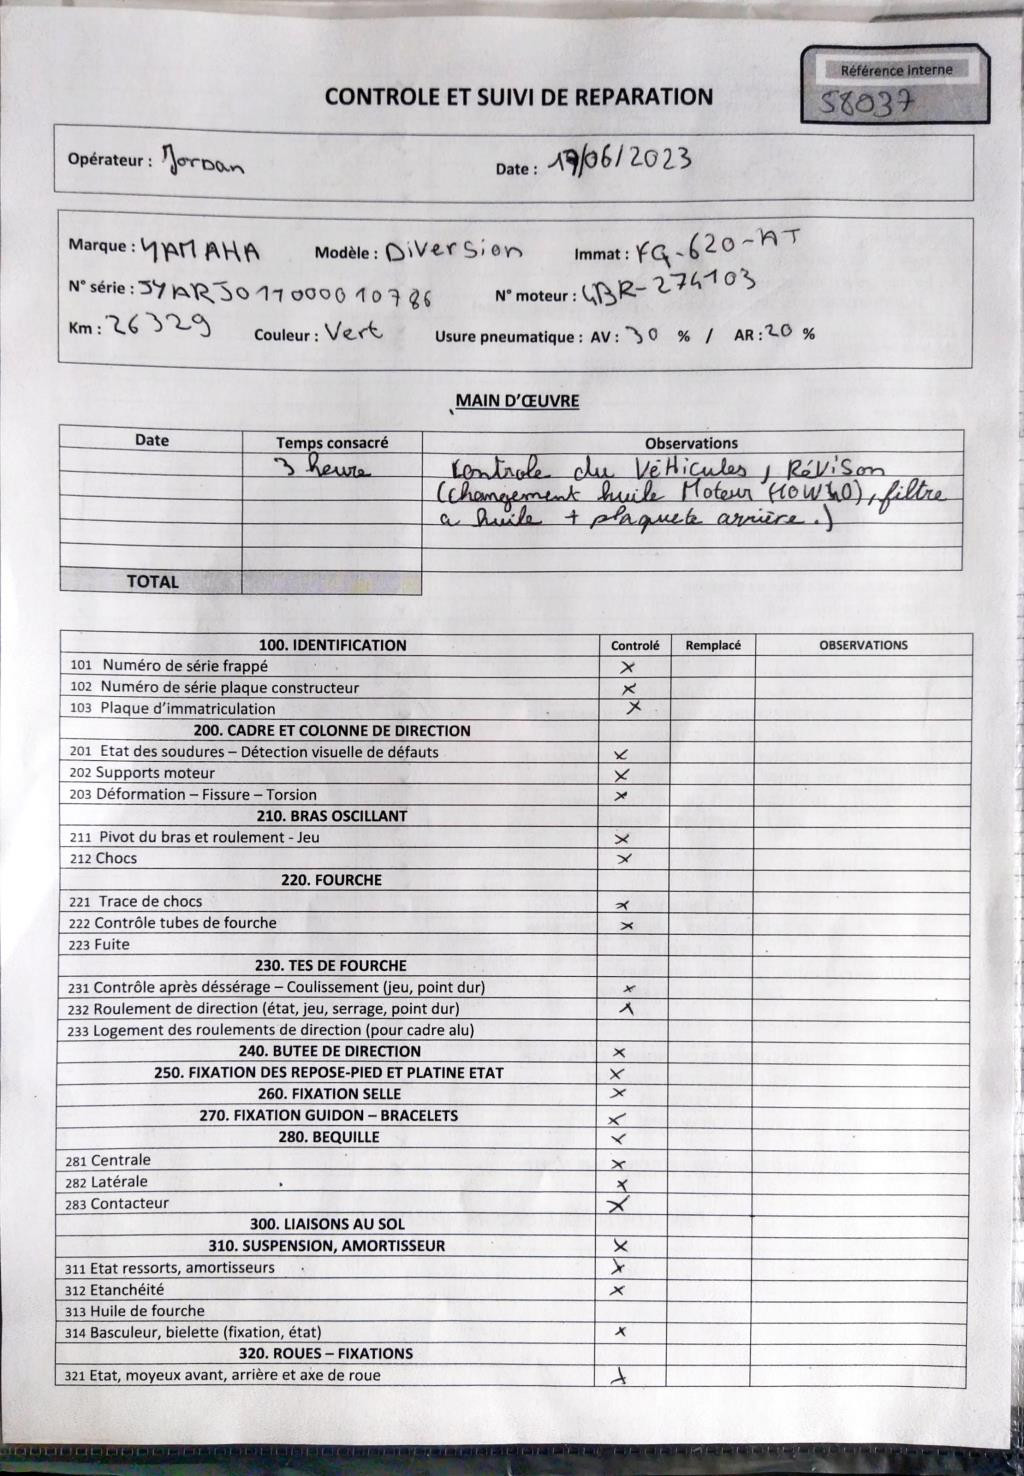 Référence interne
58037
CONTROLE ET SUIVI DE REPARATION
Opérateur : Jordan Date : 17/06/2023
Marque : YAMAHA Modèle : Diversion Immat : FG-620-AT
N° série : JYARJ017000010786 N° moteur : 4BR-274103
Km : 26329 Couleur : Vert Usure pneumatique : AV : 30 % / AR : 20 %
MAIN D'ŒUVRE
Date Temps consacré Observations
3 heure Controle du VéHicules, RéViSon
(Changement huile Moteur (10W40), filtre
a huile + plaquete arrière.)
TOTAL
100. IDENTIFICATION Controlé Remplacé OBSERVATIONS
101 Numéro de série frappé X
102 Numéro de série plaque constructeur X
103 Plaque d'immatriculation X
200. CADRE ET COLONNE DE DIRECTION
201 Etat des soudures – Détection visuelle de défauts X
202 Supports moteur X
203 Déformation – Fissure – Torsion X
210. BRAS OSCILLANT
211 Pivot du bras et roulement - Jeu X
212 Chocs X
220. FOURCHE
221 Trace de chocs X
222 Contrôle tubes de fourche X
223 Fuite
230. TES DE FOURCHE
231 Contrôle après déssérage – Coulissement (jeu, point dur) X
232 Roulement de direction (état, jeu, serrage, point dur) X
233 Logement des roulements de direction (pour cadre alu)
240. BUTEE DE DIRECTION X
250. FIXATION DES REPOSE-PIED ET PLATINE ETAT X
260. FIXATION SELLE X
270. FIXATION GUIDON – BRACELETS X
280. BEQUILLE X
281 Centrale X
282 Latérale X
283 Contacteur X
300. LIAISONS AU SOL
310. SUSPENSION, AMORTISSEUR X
311 Etat ressorts, amortisseurs X
312 Etanchéité X
313 Huile de fourche
314 Basculeur, bielette (fixation, état) X
320. ROUES – FIXATIONS
321 Etat, moyeux avant, arrière et axe de roue X